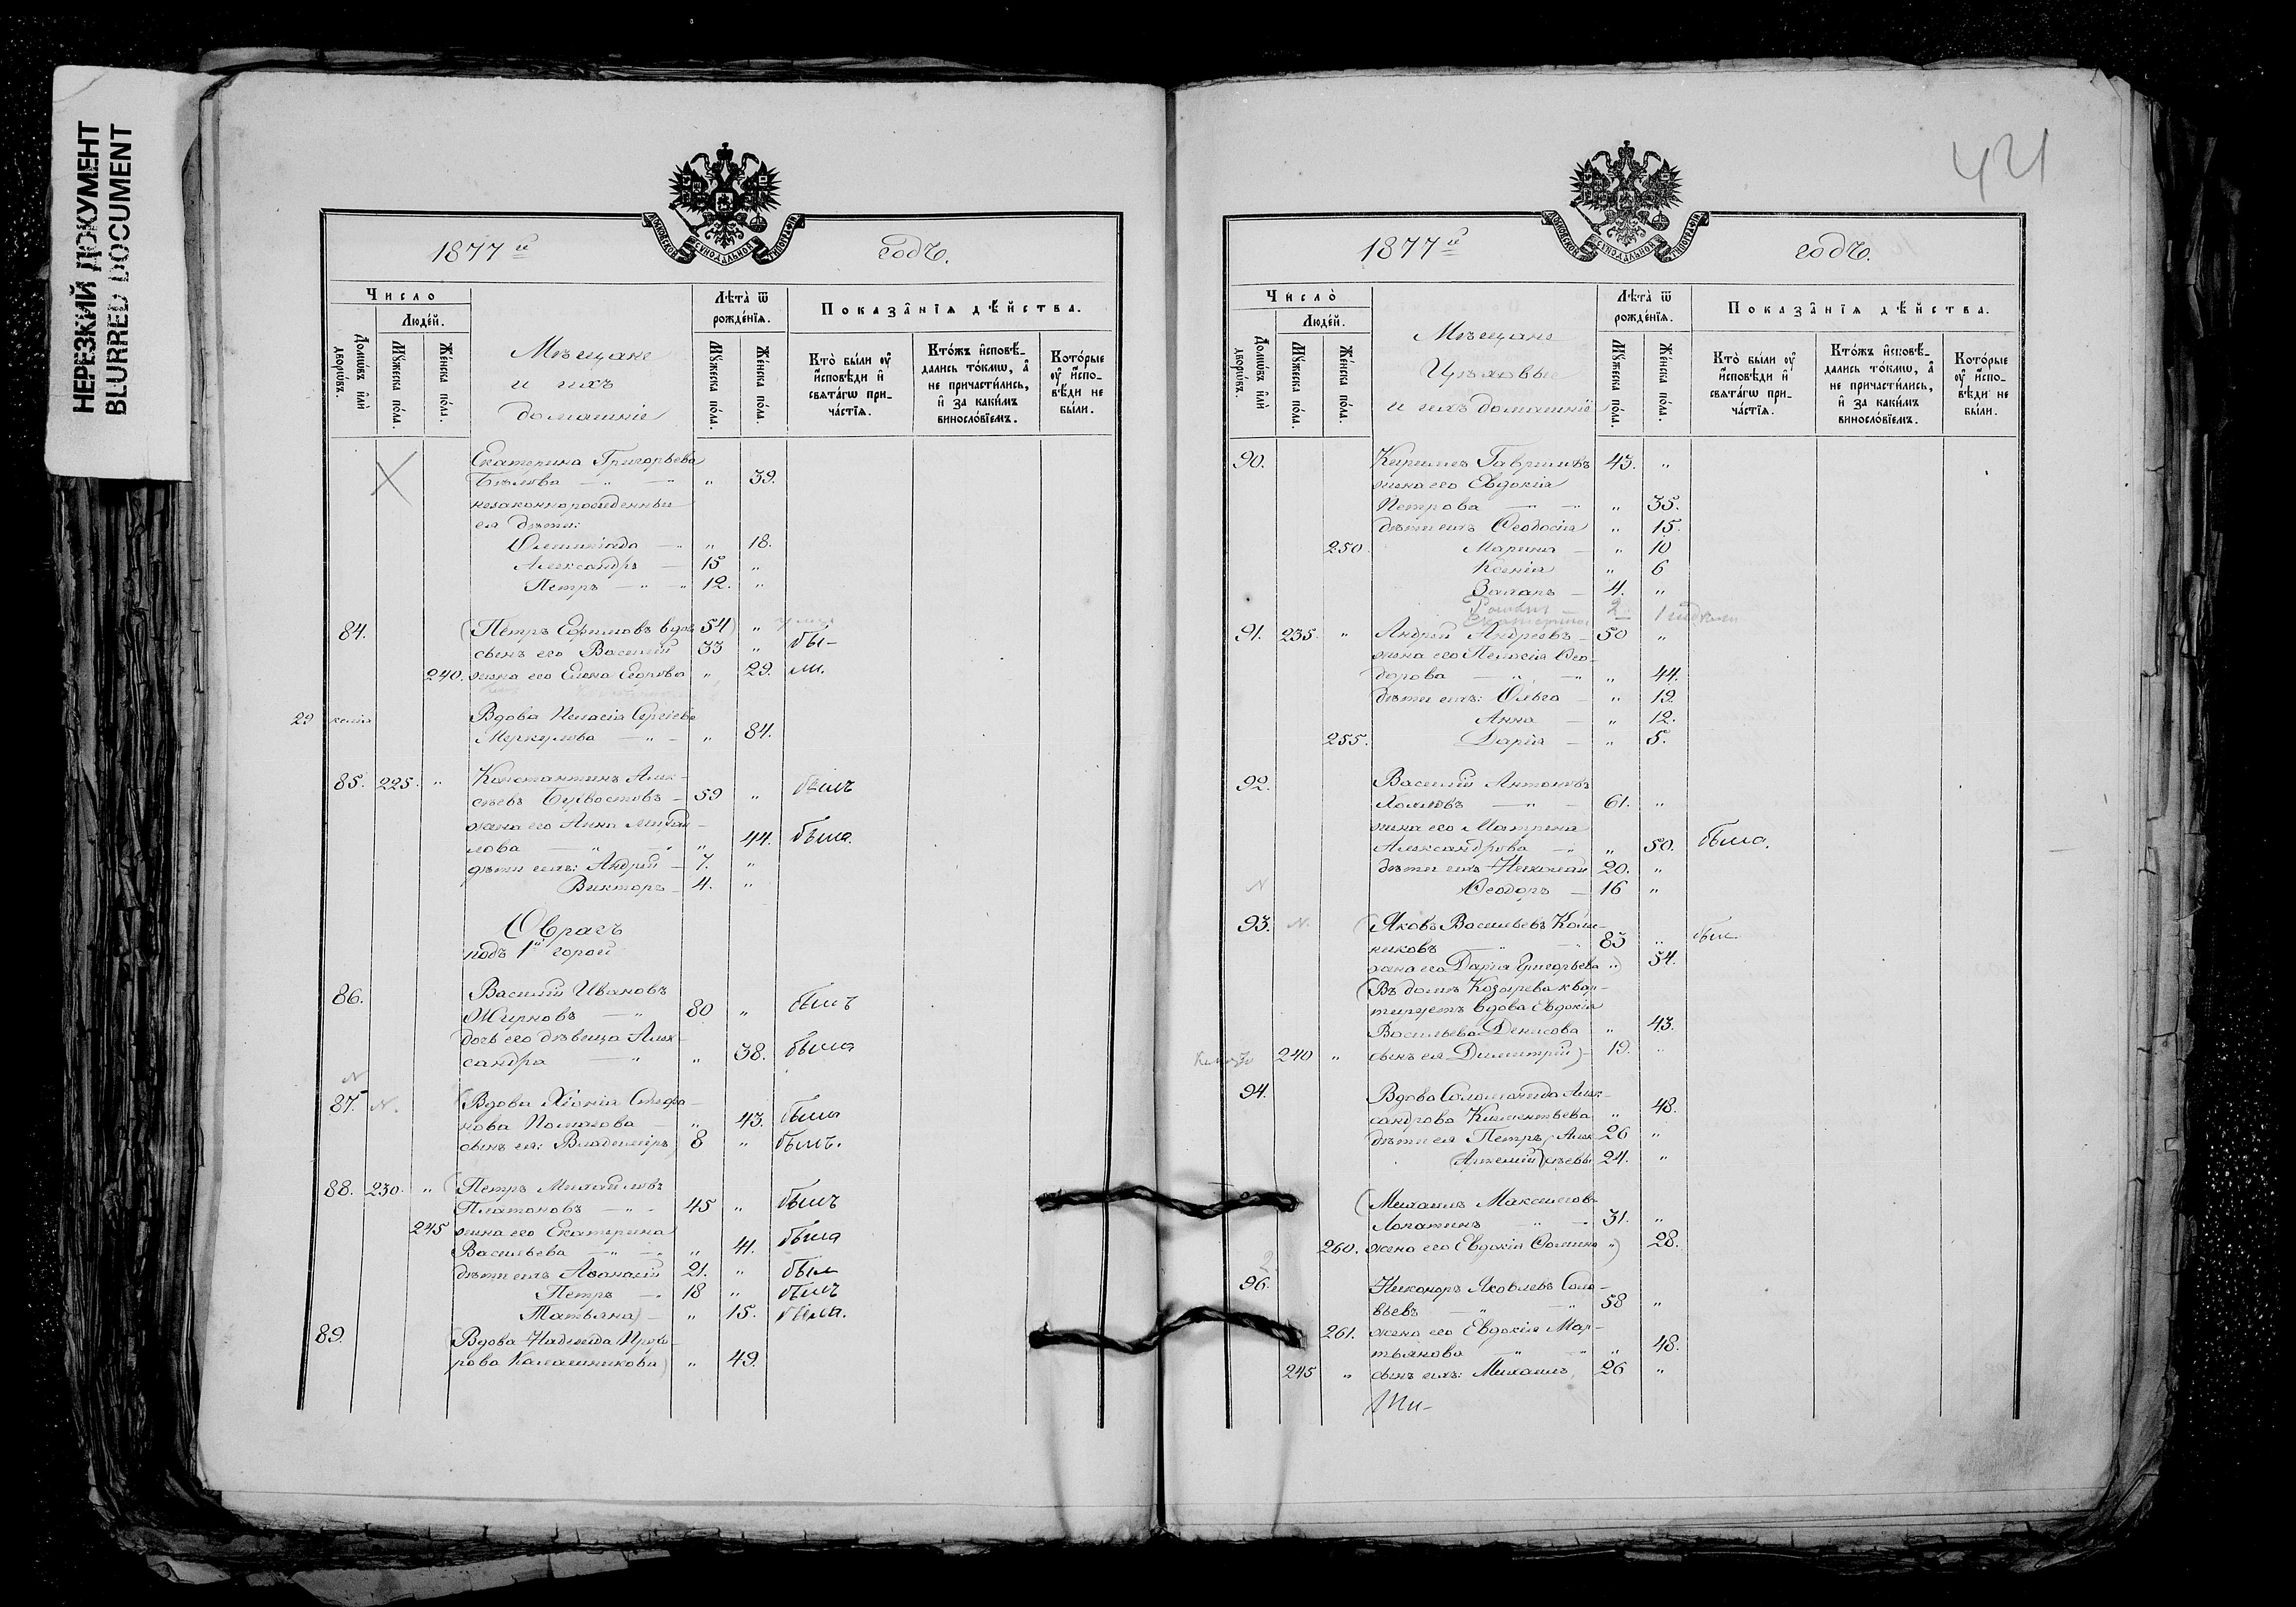 НЕРЕЗКИЙ ДОКУМЕНТ
BLURRED DOCUMENT
МОСКОВСКОЙ СѴНОДАЛЬНОЙ ТИПОГРАФІИ
1877й годъ.
Число
Людéй.
Лѣта̀ ѿ рождéнїѧ.
Показа̂нїѧ дѣ́йства.
Домѡ́въ и҆лѝ дворѡ́въ.
Мꙋ́жеска по́ла.
Же́нска по́ла.
Мѣщане
и ихъ
домашніе
Мꙋ́жеска по́ла.
Же́нска по́ла.
Кто̀ бы́ли оу҆ и҆сповѣ́ди и҆ свѧта́гѡ причáстїѧ.
Кто́жъ и҆сповѣ́дались то́кмѡ, а҆ не причасти́лись, и҆ за каки́мъ винослóвїемъ.
Кото́рые оу҆ и҆сповѣ́ди не бы́ли.
Екатерина Григорьева
Бѣлова — " — " " 39.
незаконнорожденные
ея дѣти:
Олимпіада — " 18.
Александръ — 15 "
Петръ — " — " 12. "
84. (Петръ Ефимовъ вдов 54) "
сынъ его Василій 33 " бы-
240. жена его Елена Егорова " 29. ли.
29 келія Вдова Пелагія Сергіева
Меркулова — " — " 84.
85. 225. " Константинъ Алек-
сѣевъ Бухвостовъ — 59 " былъ
жена его Анна Михай-
лова — " — " " 44. была.
дѣти ихъ: Андрей — 7. "
Викторъ — 4. "
Оврагъ
подъ 1й горой
86. Василій Ивановъ
Жирновъ — " 80 " былъ
дочь его дѣвица Алек-
сандра " " 38. была
N
87. N. (Вдова Хіонія Стефа-
нова Полякова — " 43. была
сынъ ея: Владиміръ) 8 " былъ.
88. 230. " (Петръ Михайловъ
Платоновъ — " - 45 " былъ
245 жена его Екатерина
Васильева — " — " " 41. была
дѣти ихъ Аѳанасій 21. " былъ
Петръ — 18 " былъ
Татьяна) — " 15. была.
89. (Вдова Надежда Прохо-
рова Калашникова) " 49.
421
МОСКОВСКОЙ СѴНОДАЛЬНОЙ ТИПОГРАФІИ
1877й годъ.
Число̀
Людéй.
Лѣта̀ ѿ рождéнїѧ.
Показа̂нїѧ дѣ́йства.
Домѡ́въ и҆лѝ дворѡ́въ.
Мꙋ́жеска по́ла.
Же́нска по́ла.
Мѣщане
Цѣховые
и ихъ домашніе
Мꙋ́жеска по́ла.
Же́нска по́ла.
Кто̀ бы́ли оу҆ и҆сповѣ́ди и҆ свѧта́гѡ причáстїѧ.
Кто́жъ и҆сповѣ́дались то́кмѡ, а҆ не причасти́лись, и҆ за каки́мъ винослóвїемъ.
Кото́рые оу҆ и҆сповѣ́ди не бы́ли.
90. Кириллъ Гавриловъ 43. "
жена его Евдокія
Петрова — " " 35.
дѣти ихъ Ѳеодосія " 15.
250. Марина — " 10
Ксенія " 6
4. "
2
Екатерина
91. 235. " Андрей Андреевъ — 50 "
жена его Пелагія Ѳео-
дорова — " — " " 44.
дѣти ихъ: Ольга — " 19.
Анна — " 12.
255. Дарія — " 5.
92. Василій Антоновъ
— " — 61. "
жена его Матрена
Александрова — " " 50. была.
дѣти ихъ Николай 20. "
N Ѳеодоръ — 16 "
93. N. (Яковъ Васильевъ
никовъ " — " 83 " был.
жена его Дарія Григорьева ") 54.
(Въ домѣ Козырева квар-
тируетъ вдова Евдокія
Васильева Денисова " 43.
240 " сынъ ея Димитрій) — 19. "
94. Вдова Соломонида Алек-
сандрова Климентьева " 48.
дѣти ея Петръ (Алек- 26 "
Артемій) сѣевы 24. "
(Михаилъ Максимовъ
Лопатинъ " — 31. "
260. жена его Евдокія Ѳомина ") 28.
2
96. Никоноръ Яковлевъ Соло-
вьевъ — " — " 58 "
261. жена его Евдокія Мар-
тьянова " " " 48.
245 " сынъ ихъ: Михаилъ, 26 "
Ми-